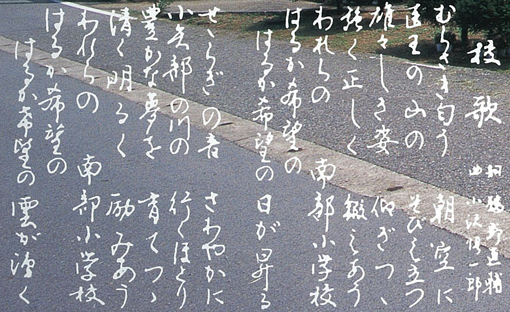 校歌
詞 野 輔
曲 小沢 一郎
むらさき匂う 朝空に
医王の山の そびえ立つ
雄々しき姿 仰ぎつゝ
強く正しく 鍛えあう
われらの 南部小学校
はるか希望の
はるか希望の 日が昇る
せゝらぎの音 さわやかに
小矢部の川の 行くほとり
豊かな夢を 育てつゝ
清く明るく 励みあう
われらの 南部小学校
はるか希望の
はるか希望の 雲が湧く